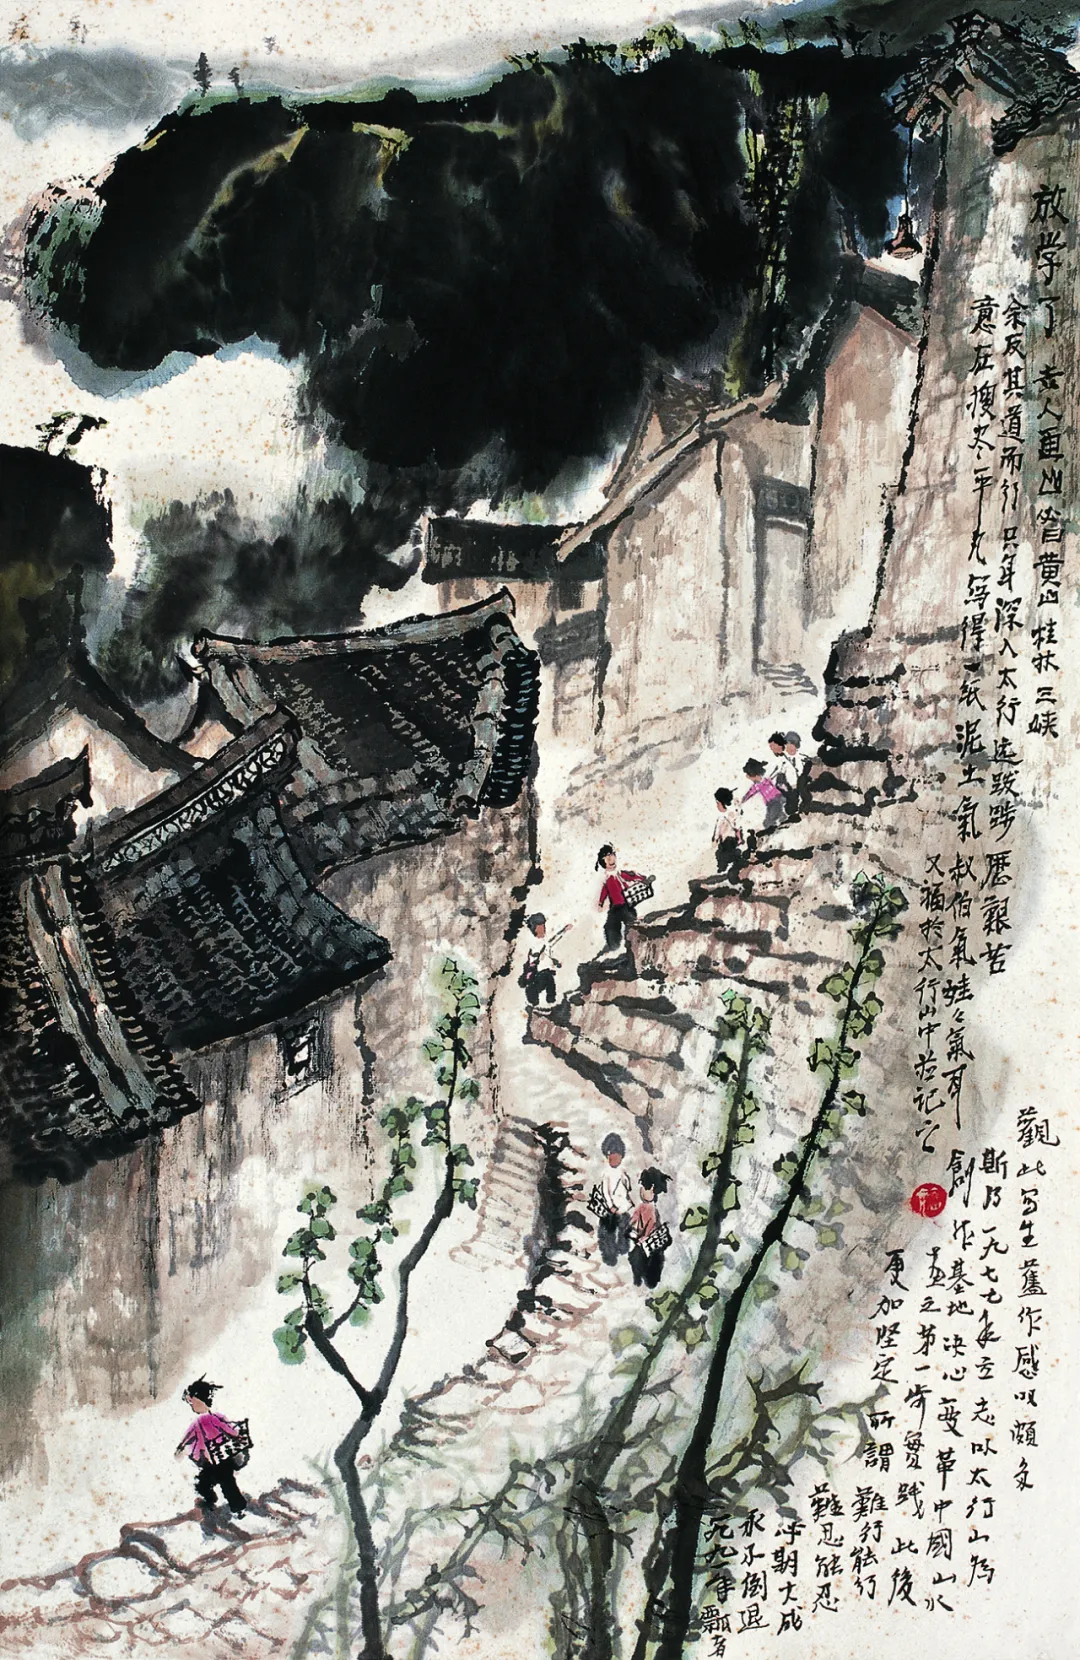 放学了 古人画山皆黄山桂林三峡
余反其道而行只身深入太行远跋踄歷艱苦
意在搜尽平凡写得一纸泥土氣
叔伯氣娃々氣耳
又福於太行山中并记之
觀此写生舊作感叹颇多
斯乃一九七七年立志以太行山為
創作基地决心变革中國山水
画之第一步實践此後
更加坚定所謂
難行能行
難忍能忍
以期大成
永不倒退
一九九一年瓢者